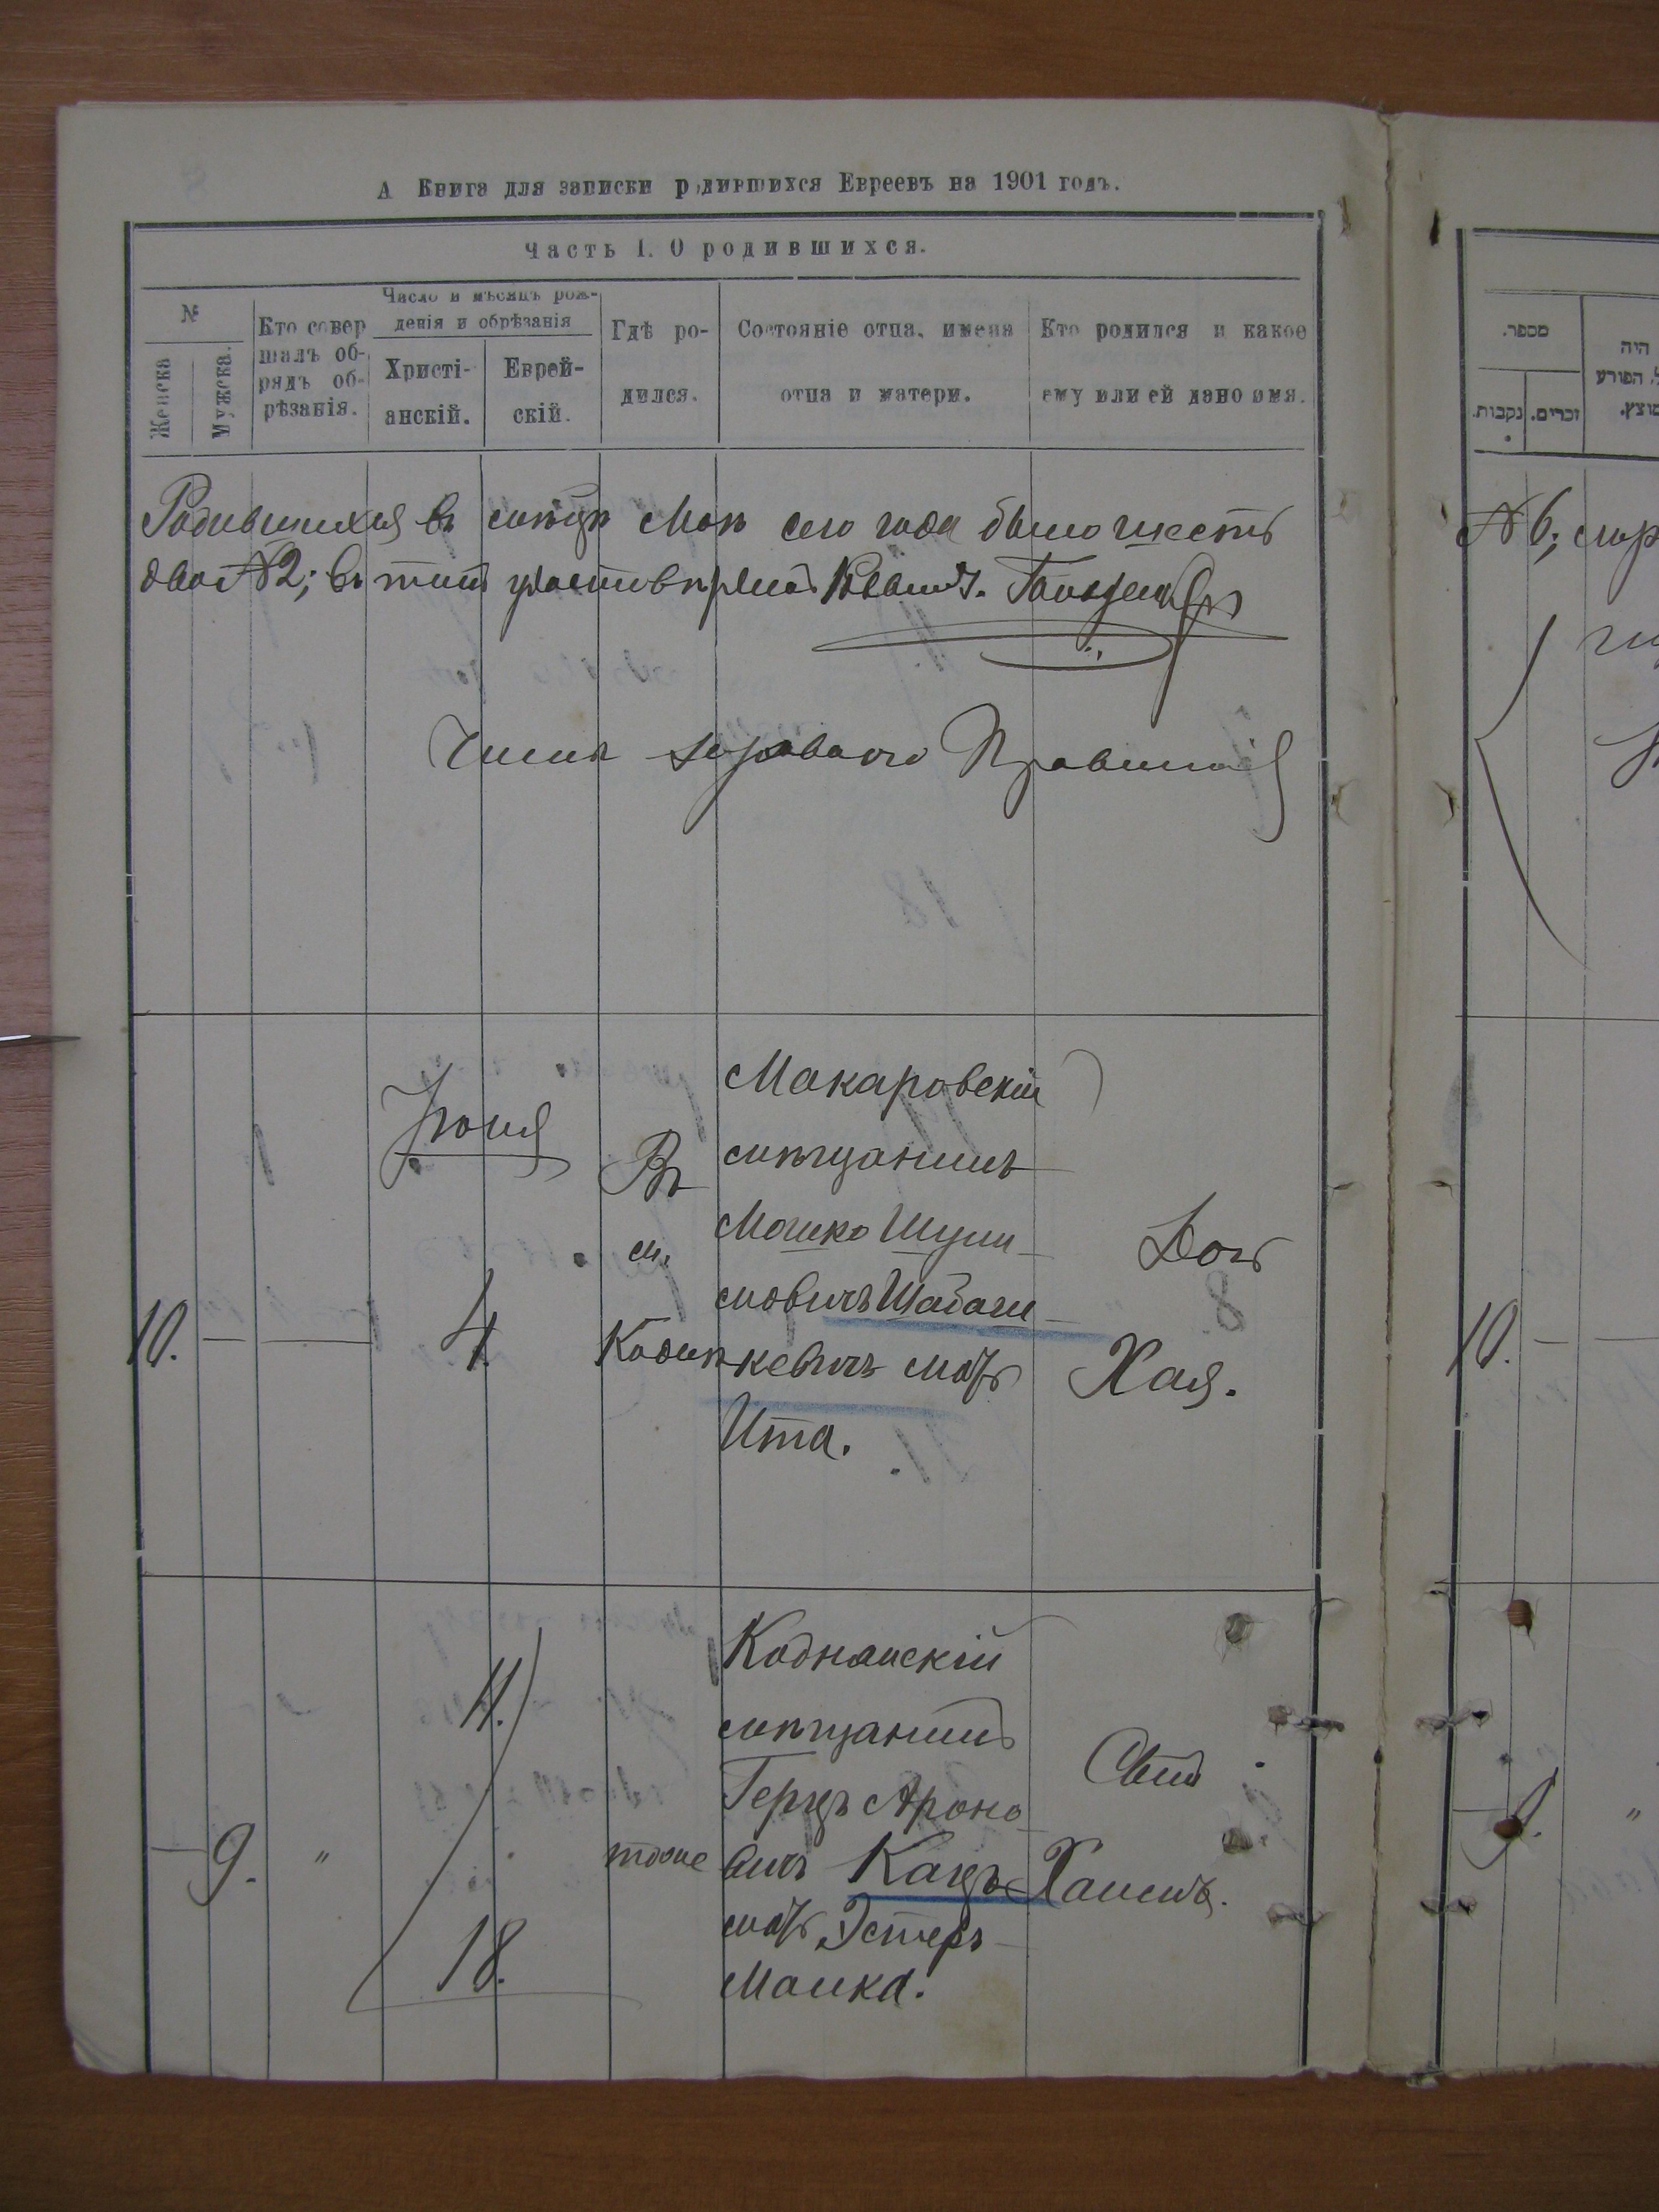 А Книга для записки родившихся Евреевъ на 1901 годъ.
Часть I. О родившихся.
№
Женска
Мужска.
Кто совер
шалъ об-
рядъ об-
рѣзанія.
Число и мѣсяцъ рож-
денія и обрѣзанія
Христі-
анскій.
Еврей-
скій.
Гдѣ ро-
дился.
Состояніе отца, имена
отца и матери.
Кто родился и какое
ему или ей дано имя.
Родившихся въ мѣсяцѣ Маѣ сего года было шесть
два №2; въ томъ удостовѣряю
Члены Духовного Правленія
10.
—
—
Іюня
4.
Въ
м.
Кодня
Макаровскій
мѣщанинъ
Мошко Шули-
мовичъ Шабаш-
кевичъ мать
Ита.
Дочь
Хая.
—
9.
"
11.
18.
тоже
Коднянскій
мѣщанинъ
Герцъ Ароно-
вичъ Кацъ
мать Эстеръ-
Малка.
Сынъ
Хаимъ.
מספר.
נקבות.
זכרים.
היה
הפורע
№ 6;
10.
—
—
9.
"